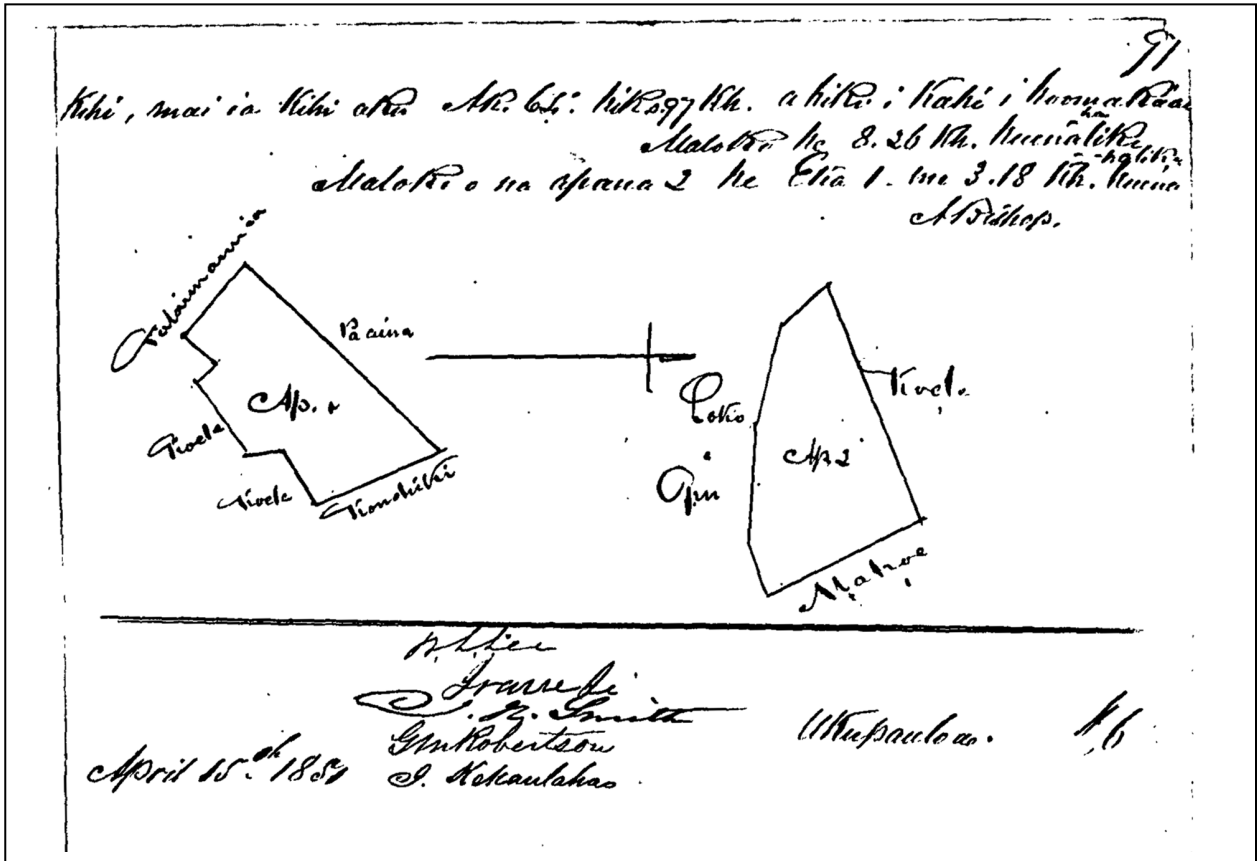 91
Kihi, mai ia Kihi aku Ak. 64: hik. 97 Kh. a hiki i Kahi i hoomaka ai
Maloko he 8.26 Kh. huinahalike
Maloko o na apana 2 he Eka 1. me 3.18 Kh. huinahalike
A Bishop.
Palaimamia
Pa aina
Ap. 1
Koele
Koele
Konohiki
Loko
Opu
Ap 2
Koele
Mahoe
W. L. Lee
J. H. Smith
G M Robertson
J. Kekaulahao
April 15th 1851
Uku pauloa. $6